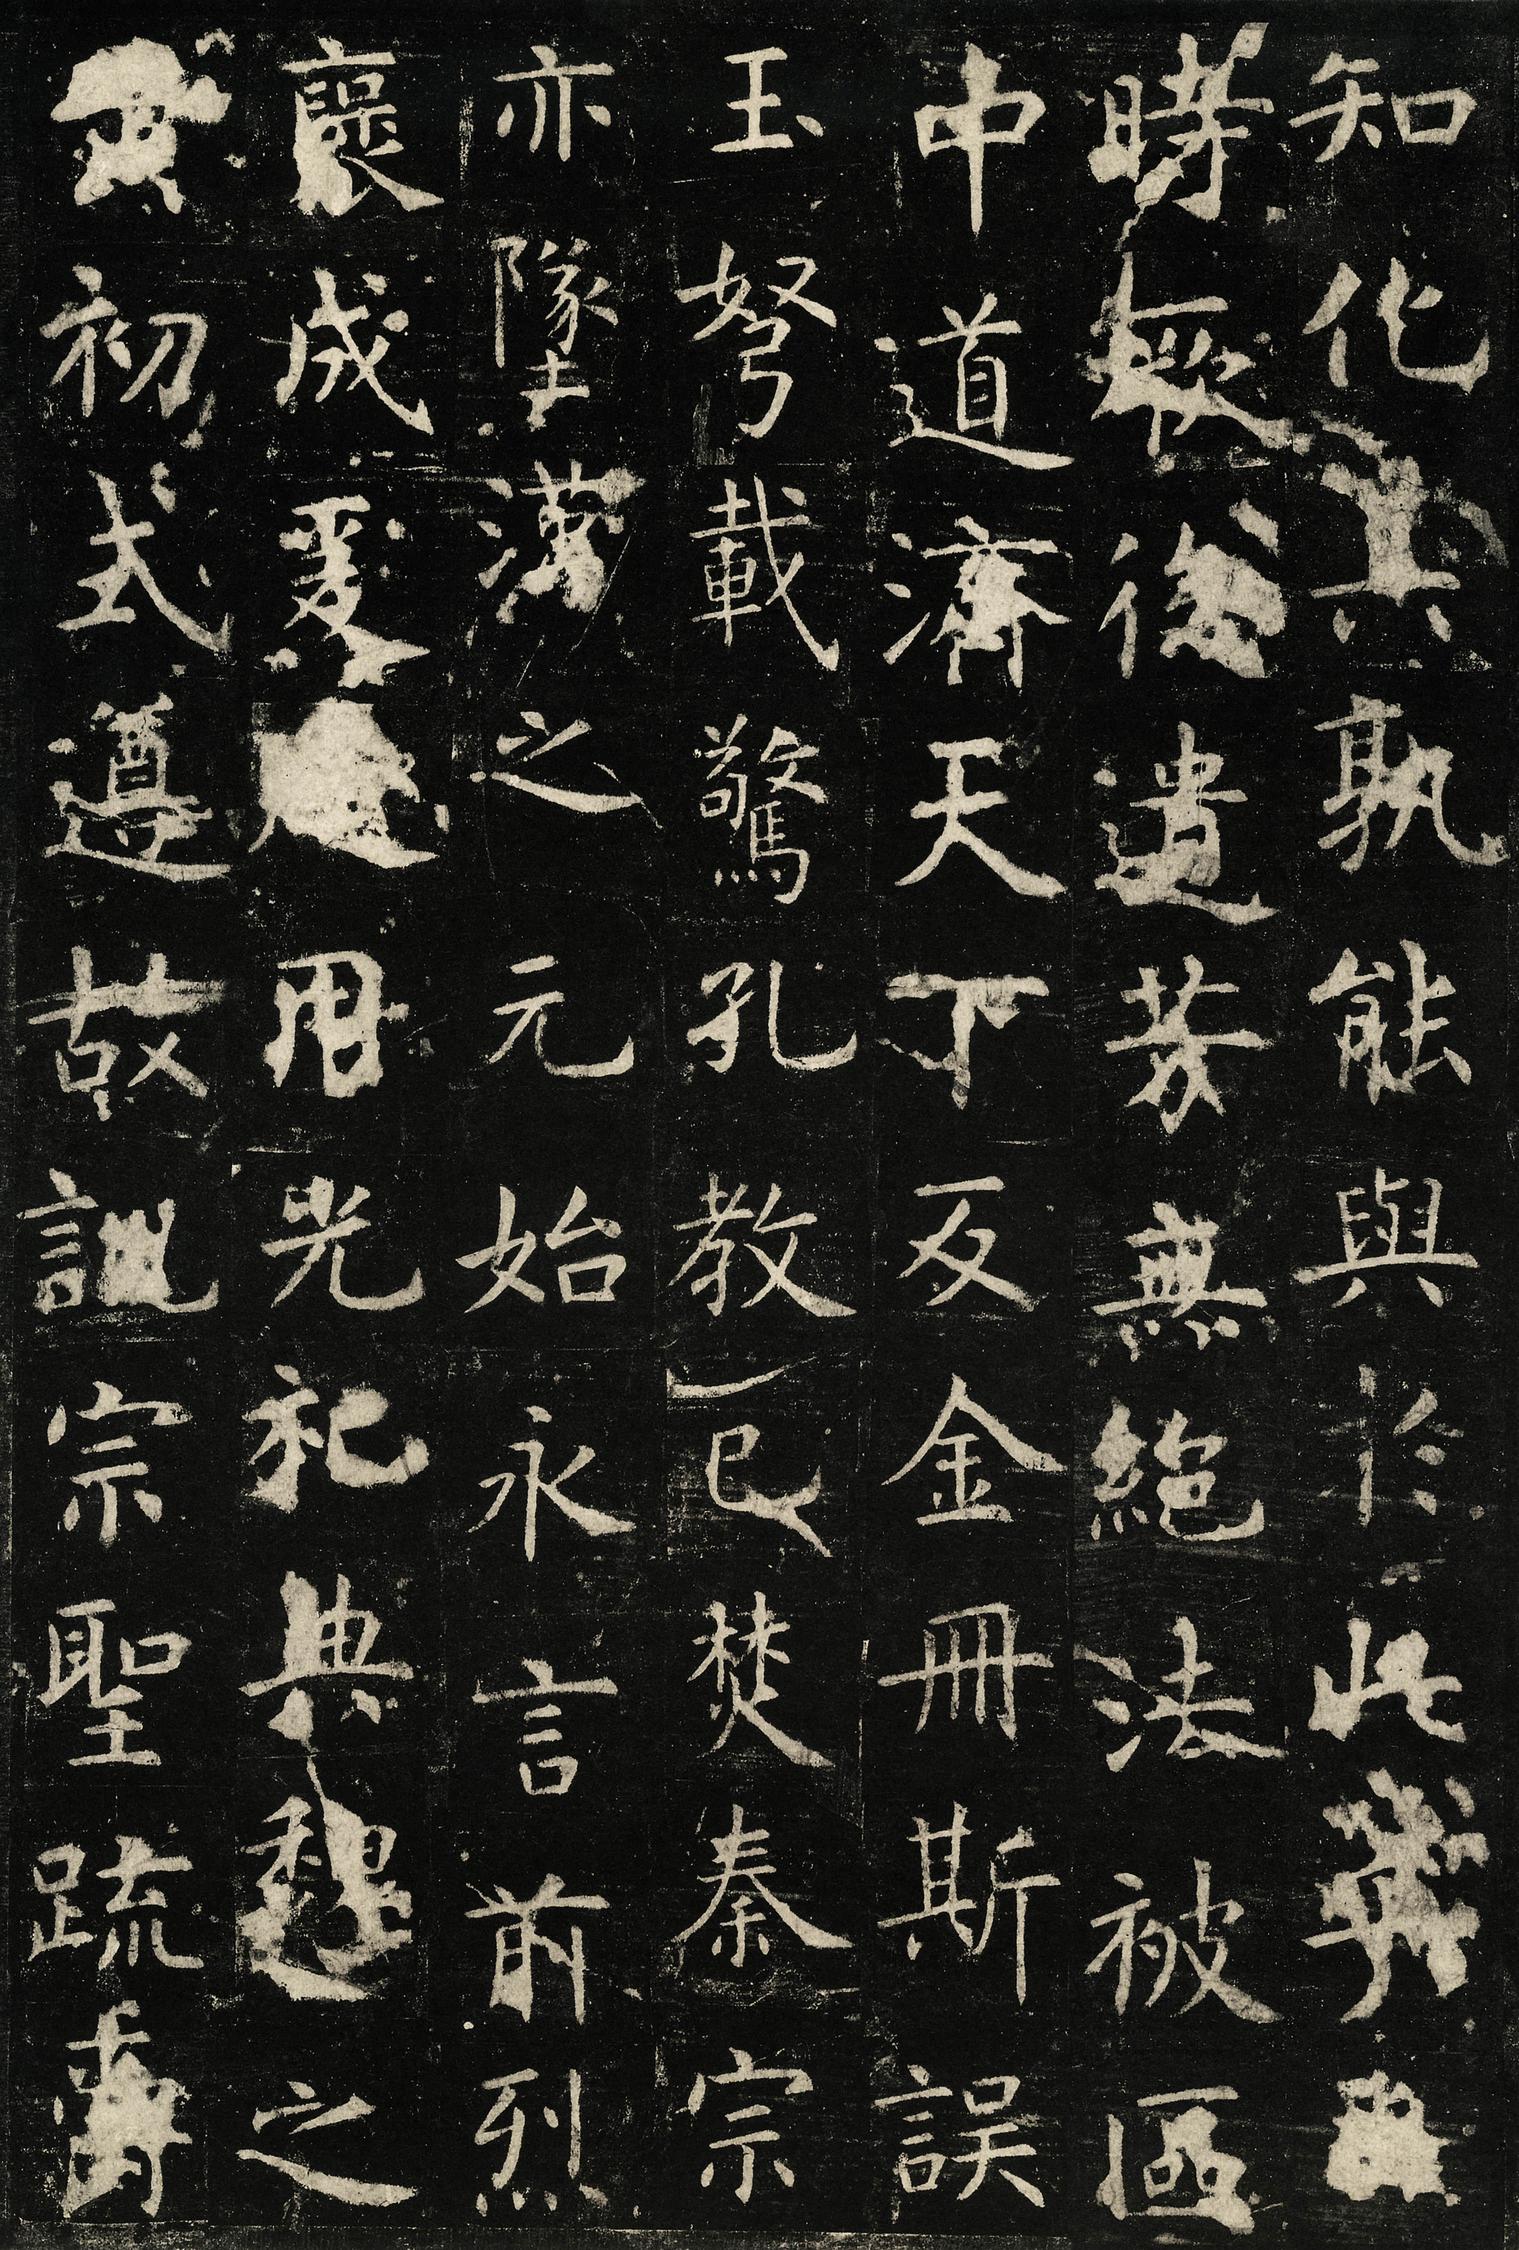 知化其孰能與於此乎自
時厥後遺芳無絕法被區
中道濟天下及金冊斯誤
玉弩載驚孔教已焚秦宗
亦墜漢之元始永言前烈
襃成爰建用光祀典魏之
黃初式遵故訓宗聖疏爵